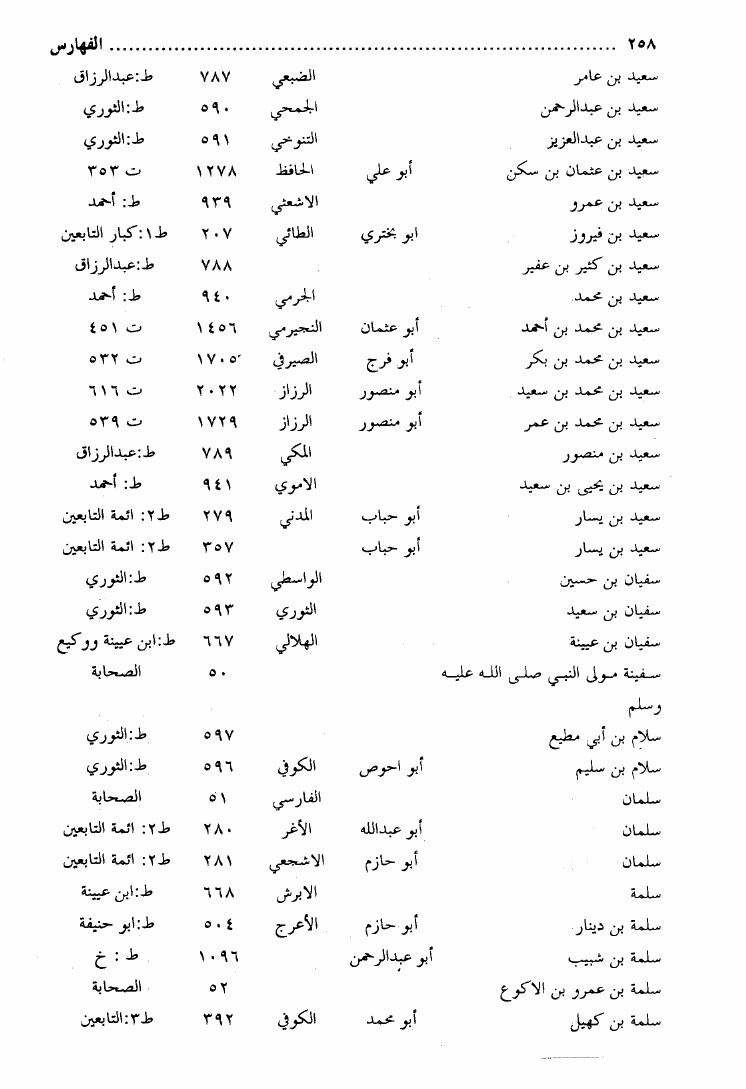 ٢٥٨ ........................................................................ الفهارس
سعيد بن عامر الضبعي ٧٨٧ ط:عبدالرزاق
سعيد بن عبدالرحمن الجمحي ٥٩٠ ط:الثوري
سعيد بن عبدالعزيز التنوخي ٥٩١ ط:الثوري
سعيد بن عثمان بن سكن أبو علي الحافظ ١٢٧٨ ت ٣٥٣
سعيد بن عمرو الاشعثي ٩٣٩ ط: أحمد
سعيد بن فيروز ابو بختري الطائي ٢٠٧ ط١:كبار التابعين
سعيد بن كثير بن عفير ٧٨٨ ط:عبدالرزاق
سعيد بن محمد الجرمي ٩٤٠ ط: أحمد
سعيد بن محمد بن أحمد أبو عثمان النجيرمي ١٤٥٦ ت ٤٥١
سعيد بن محمد بن بكر أبو فرج الصيرفي ١٧٠٥ ت ٥٣٢
سعيد بن محمد بن سعيد أبو منصور الرزاز ٢٠٢٢ ت ٦١٦
سعيد بن محمد بن عمر أبو منصور الرزاز ١٧٢٩ ت ٥٣٩
سعيد بن منصور المكي ٧٨٩ ط:عبدالرزاق
سعيد بن يحيى بن سعيد الاموي ٩٤١ ط: أحمد
سعيد بن يسار أبو حباب المدني ٢٧٩ ط٢: ائمة التابعين
سعيد بن يسار أبو حباب ٣٥٧ ط٢: ائمة التابعين
سفيان بن حسين الواسطي ٥٩٢ ط:الثوري
سفيان بن سعيد الثوري ٥٩٣ ط:الثوري
سفيان بن عيينة الهلالي ٦٦٧ ط:ابن عيينة ووكيع
سفينة مولى النبي صلى الله عليه ٥٠ الصحابة
وسلم
سلام بن أبي مطيع ٥٩٧ ط:الثوري
سلام بن سليم أبو احوص الكوفي ٥٩٦ ط:الثوري
سلمان الفارسي ٥١ الصحابة
سلمان أبو عبدالله الأغر ٢٨٠ ط٢: ائمة التابعين
سلمان أبو حازم الاشجعي ٢٨١ ط٢: ائمة التابعين
سلمة الابرش ٦٦٨ ط:ابن عيينة
سلمة بن دينار أبو حازم الأعرج ٥٠٤ ط:ابو حنيفة
سلمة بن شبيب أبو عبدالرحمن ١٠٩٦ ط : خ
سلمة بن عمرو بن الاكوع ٥٢ الصحابة
سلمة بن كهيل أبو محمد الكوفي ٣٩٢ ط٣:التابعين